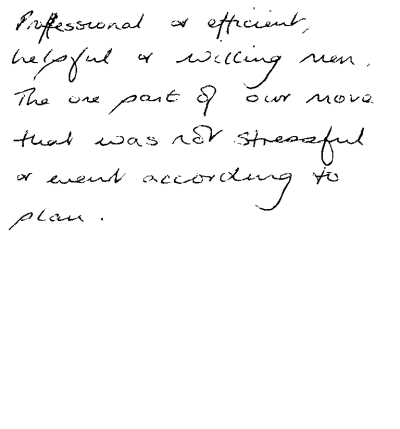 Professional & efficient,
helpful & willing men.
The one part of our move
that was not stressful
& event according to
plan.